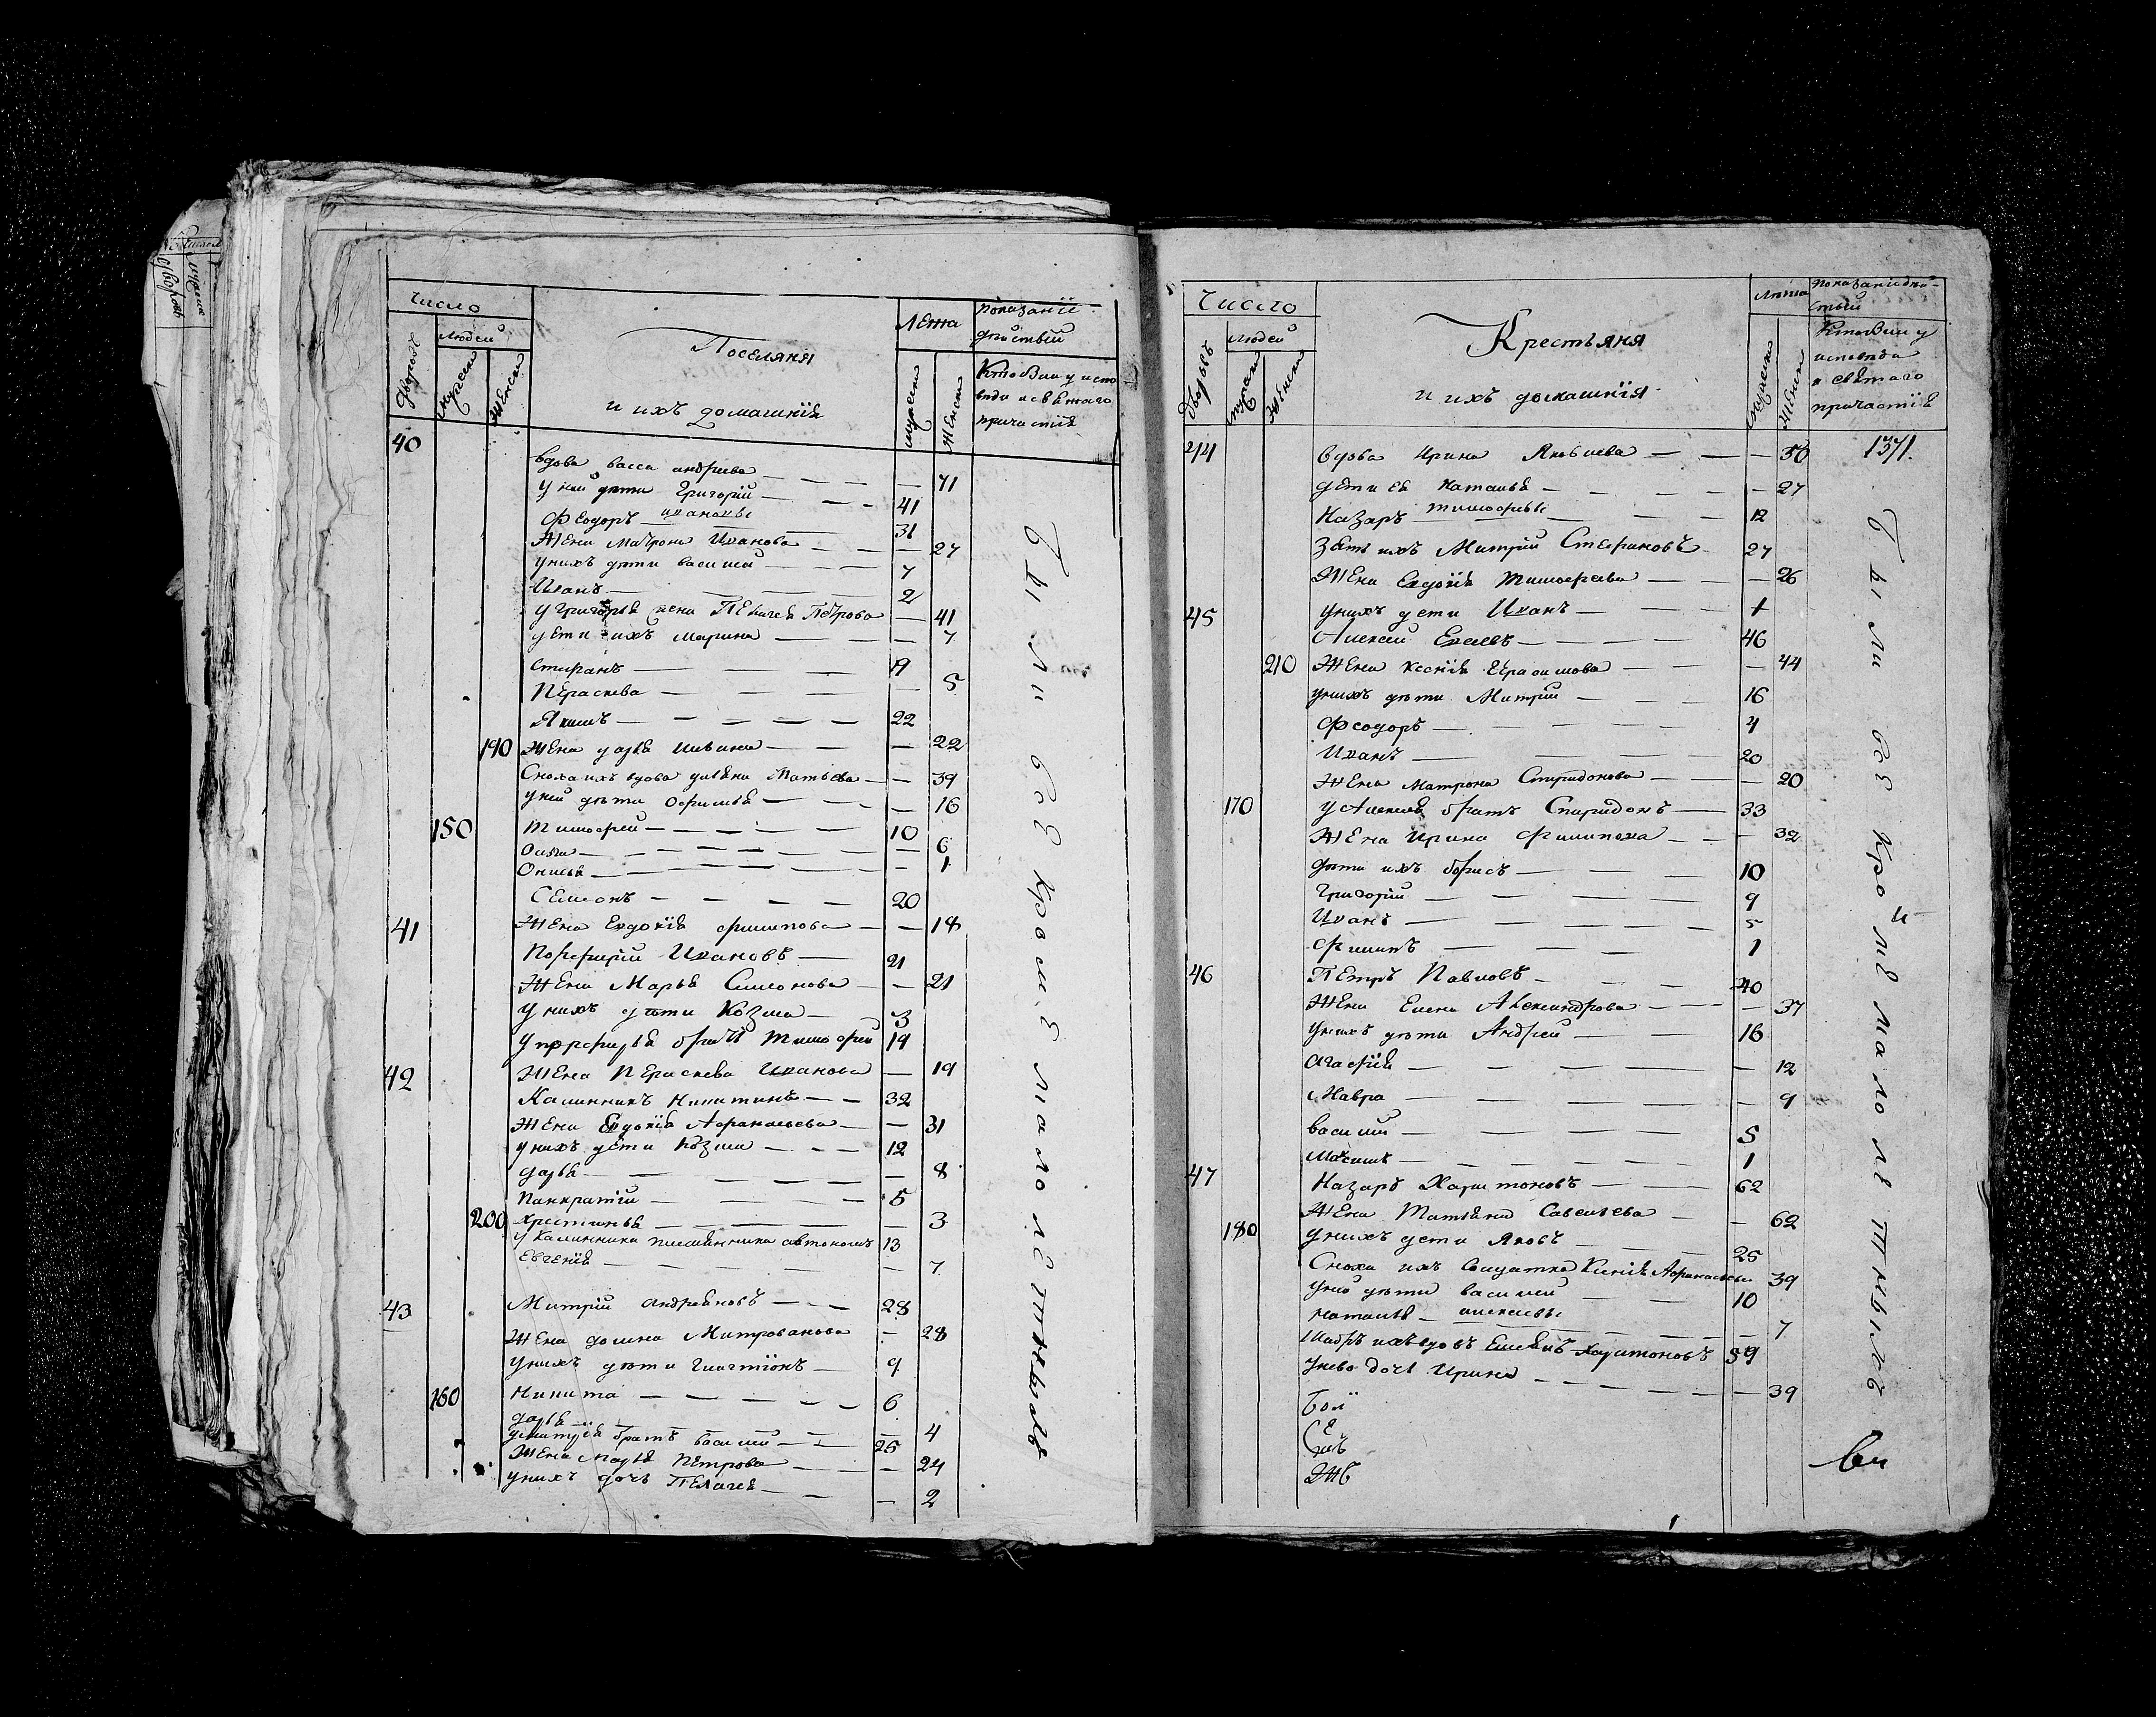 Число
Людей
Дворовъ
мужеск
Женск
Поселяня
и ихъ домашнїя
Лета
мужеск
Женск
показанїе
действъй
Кто былъ у испо
веди и святаго
причастия
40
вдова васса андреева — 71
у ней дети Григорий — 41
Феодоръ — ивановы 31
Жена Матрона Иванова — 27
у нихъ дети василий — 7
Иванъ — 2
у Григорья жена Пелагея Петрова — 41
дети ихъ Марина — 7
Стефанъ — 19
Пераскева — 5
Яким — 22
190 Жена дарья — 22
Сноха ихъ вдова ульяна Матвева — 39
у ней дети — 16
150 Тимофей — 10
— 6
— 1
Семонъ — 20
41 Жена Евдокия филипова — 18
Порфирий Ивановъ — 21
Жена Марья Симонова — 21
у нихъ дети Козма — 3
у порфирья братъ Тимофей 19
42 Жена Пераскева Иванова — 19
Калинникъ Никитинъ — 32
Жена Евдокия Афанасьева — 31
у нихъ дети Козма — 12
дарья — 8
Панкратий — 5
200 христинья — 3
у Калинника племянники автономъ 13
Евгения — 7
43 Митрий андреяновъ — 28
Жена домна Митрованова — 28
у нихъ дети — 9
160 Никита — 6
дарья — 4
у митрия братъ василий — 25
Жена марья Петрова — 24
у нихъ дочь Пелагея — 2
Были безъ кроме малолетныхъ
Число
Людей
Дворовъ
мужеск
Женск
Крестьяня
и ихъ домашнїя
лета
мужеск
Женск
Показание дей-
ствъй
Кто былъ у
исповеди
и святаго
причастия
44 вдова Ирина Яковлева — 50 1371.
дети ея Наталья — 27
Назаръ тимофеевы — 12
Зять ихъ Митрий Стефановъ — 27
Жена Евдокия Тимофеева — 26
45 у нихъ дети Иванъ — 1
Алексей — 46
210 Жена Ксения Герасимова — 44
у нихъ дети Митрий — 16
Феодоръ — 4
Иванъ — 20
Жена Матрона Спиридонова — 20
170 у Алексея братъ Спиридонъ — 33
Жена Ирина Филипова — 32
дети ихъ борисъ — 10
Григорий — 9
Иванъ — 5
Филипъ — 1
46 Петръ Павловъ — 40
Жена Елена Александрова — 37
у нихъ дети Андрей — 16
Агафия — 12
Мавра — 9
василий — 5
Максимъ — 1
47 Назаръ Харитоновъ — 62
Жена Татьяна Савельева — 62
180 у нихъ дети Яковъ — 25
Сноха ихъ солдатка Ксения Афанасьева 39
у ней дети василий — 10
наталья — алексеевы — 7
братъ ихъ вдовъ Емельянъ Харитоновъ 59
у нево дочь Ирина — 39
Были безъ кромѣ малолетныхъ